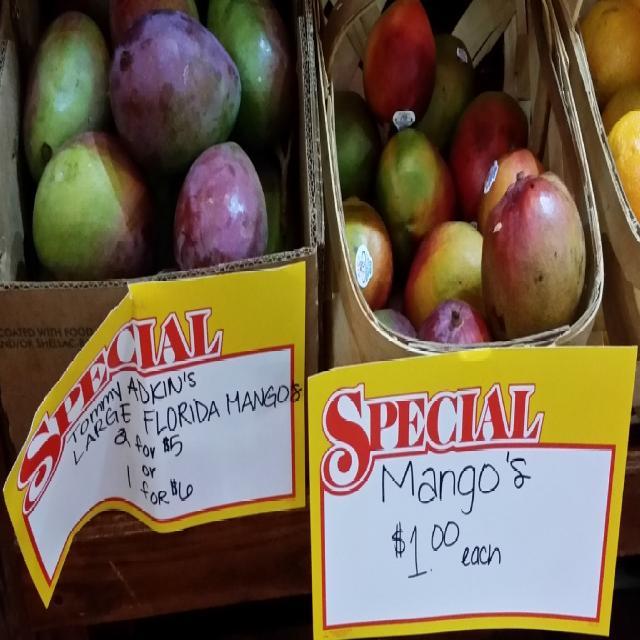 COATED WITH FOOD
SPECIAL
TOMMY ADKIN'S
LARGE FLORIDA MANGO'S
2 for $5
or
1 for $6
SPECIAL
Mango's
$1.00 each